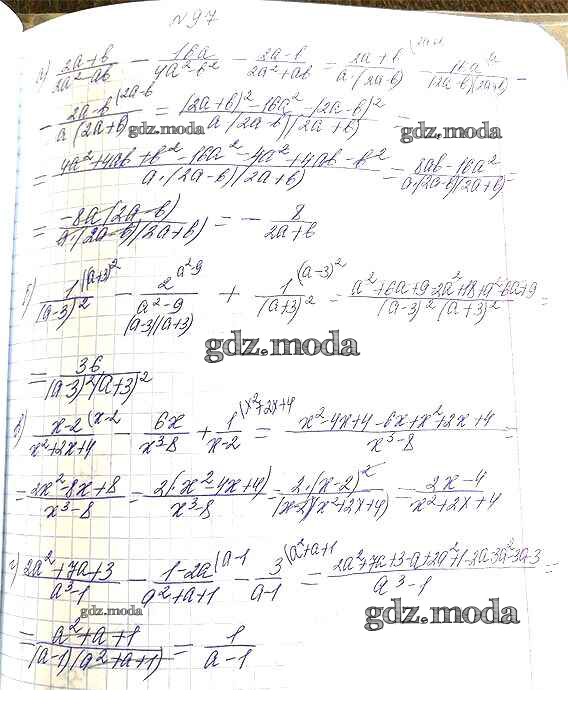 N97
а) (2a+b)/(2a²-ab) - 16a/(4a²-b²) - (2a-b)/(2a²+ab) = (2a+b)/(a·(2a-b)) - 16a/((2a-b)(2a+b)) -
- (2a-b)/(a(2a+b)) = ((2a+b)²-16a²-(2a-b)²)/(a(2a-b)(2a+b)) =
gdz.moda
gdz.moda
= (4a²+4ab+b²-16a²-4a²+4ab-b²)/(a·(2a-b)(2a+b)) = (8ab-16a²)/(a(2a-b)(2a+b)) =
= (-8a(2a-b))/(a·(2a-b)(2a+b)) = - 8/(2a+b)
б) 1/(a-3)² (a+3)² - 2/(a²-9) a²-9 + 1/(a+3)² (a-3)² = (a²+6a+9-2a²+18+a²-6a+9)/((a-3)²(a+3)²) =
(a-3)(a+3)
gdz.moda
= 36/((a-3)²(a+3)²)
в) (x-2)/(x²+2x+4) (x-2 - 6x/(x³-8) + 1/(x-2) (x²+2x+4 = (x²-4x+4-6x+x²+2x+4)/(x³-8) =
= (2x²-8x+8)/(x³-8) = 2(x²-4x+4)/(x³-8) = 2·(x-2)²/((x-2)(x²+2x+4)) = (2x-4)/(x²+2x+4)
г) (2a²+7a+3)/(a³-1) - (1-2a)/(a²+a+1) (a-1 - 3/(a-1) (a²+a+1 = (2a²+7a+3-a+2a²+1-2a-3a²-3a-3)/(a³-1) =
gdz.moda
gdz.moda
= (a²+a+1)/((a-1)(a²+a+1)) = 1/(a-1)